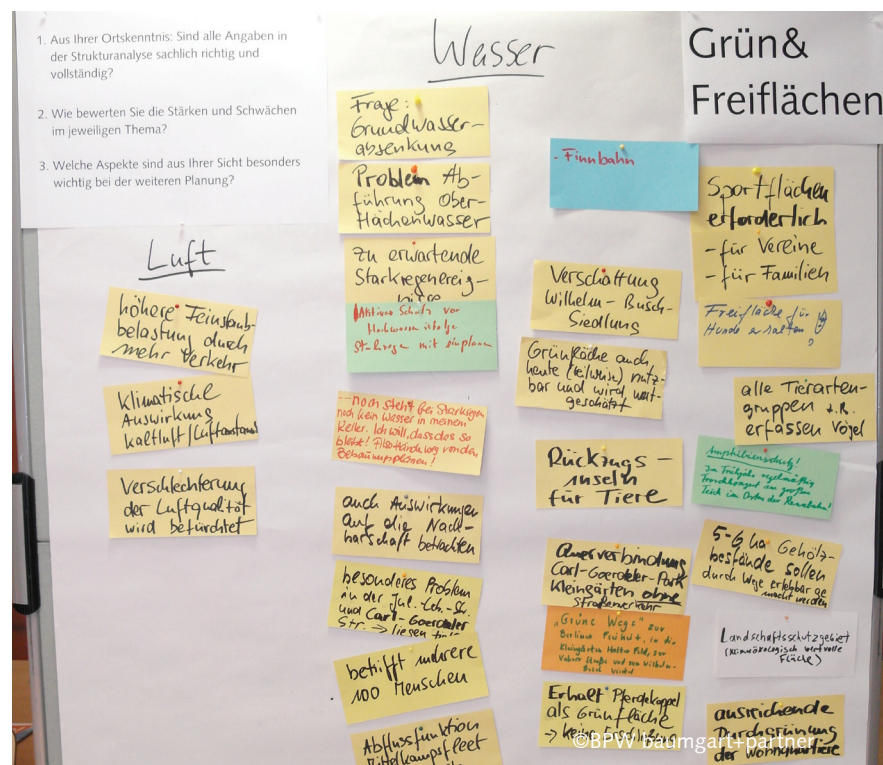 1. Aus Ihrer Ortskenntnis: Sind alle Angaben in
der Strukturanalyse sachlich richtig und
vollständig?
2. Wie bewerten Sie die Stärken und Schwächen
im jeweiligen Thema?
3. Welche Aspekte sind aus Ihrer Sicht besonders
wichtig bei der weiteren Planung?
Luft
höhere Feinstaub-
belastung durch
mehr Verkehr
Klimatische
Auswirkung
Kaltluft/Luftaustausch
Verschlechterung
der Luftqualität
wird befürchtet
Wasser
Frage:
Grundwasser-
absenkung
Problem Ab-
führung Ober-
flächenwasser
zu erwartende
Starkregenereig-
nisse
Aktiver Schutz vor
Hochwasser infolge
Starkregen mit einplanen
noch steht bei Starkregen
noch kein Wasser in meinem
Keller. Ich will, dass das so
bleibt! Also Hände weg von den
Bebauungsplänen!
auch Auswirkungen
auf die Nach-
barschaft betrachten
besonderes Problem
in der Jul.-Leb.-Str.
und Carl-Goerdeler
Str. → liegen tief
betrifft mehrere
100 Menschen
Abflussfunktion
Mittelkampsfleet
- Finnbahn
Verschattung
Wilhelm-Busch-
Siedlung
Grünfläche auch
heute (teilweise) nutz-
bar und wird wert-
geschätzt
Rückzugs-
inseln
für Tiere
Querverbindung
Carl-Goerdeler-Park
Kleingärten ohne
Straßenverkehr
"Grüne Wege" zur
Berliner Freiheit, in die
Kleingärten Holter Feld, zur
Vahrer Straße und zum Wilhelm-
Busch
Erhalt Pferdekoppel
als Grünfläche
→ keine
Grün&
Freiflächen
Sportflächen
erforderlich
- für Vereine
- für Familien
Freifläche für
Hunde erhalten
!
alle Tierarten-
gruppen z.B.
erfassen Vögel
Amphibienschutz!
Im Frühjahr regelmäßig
Froschkonzert am großen
Teich im Osten der Rennbahn!
5-6 ha Gehölz-
bestände sollen
durch Wege erlebbar ge
macht werden
Landschaftsschutzgebiet
(klimaökologisch wertvolle
Fläche)
ausreichende
Durchgrünung
der Wohnquartiere
©BPW baumgart+partner